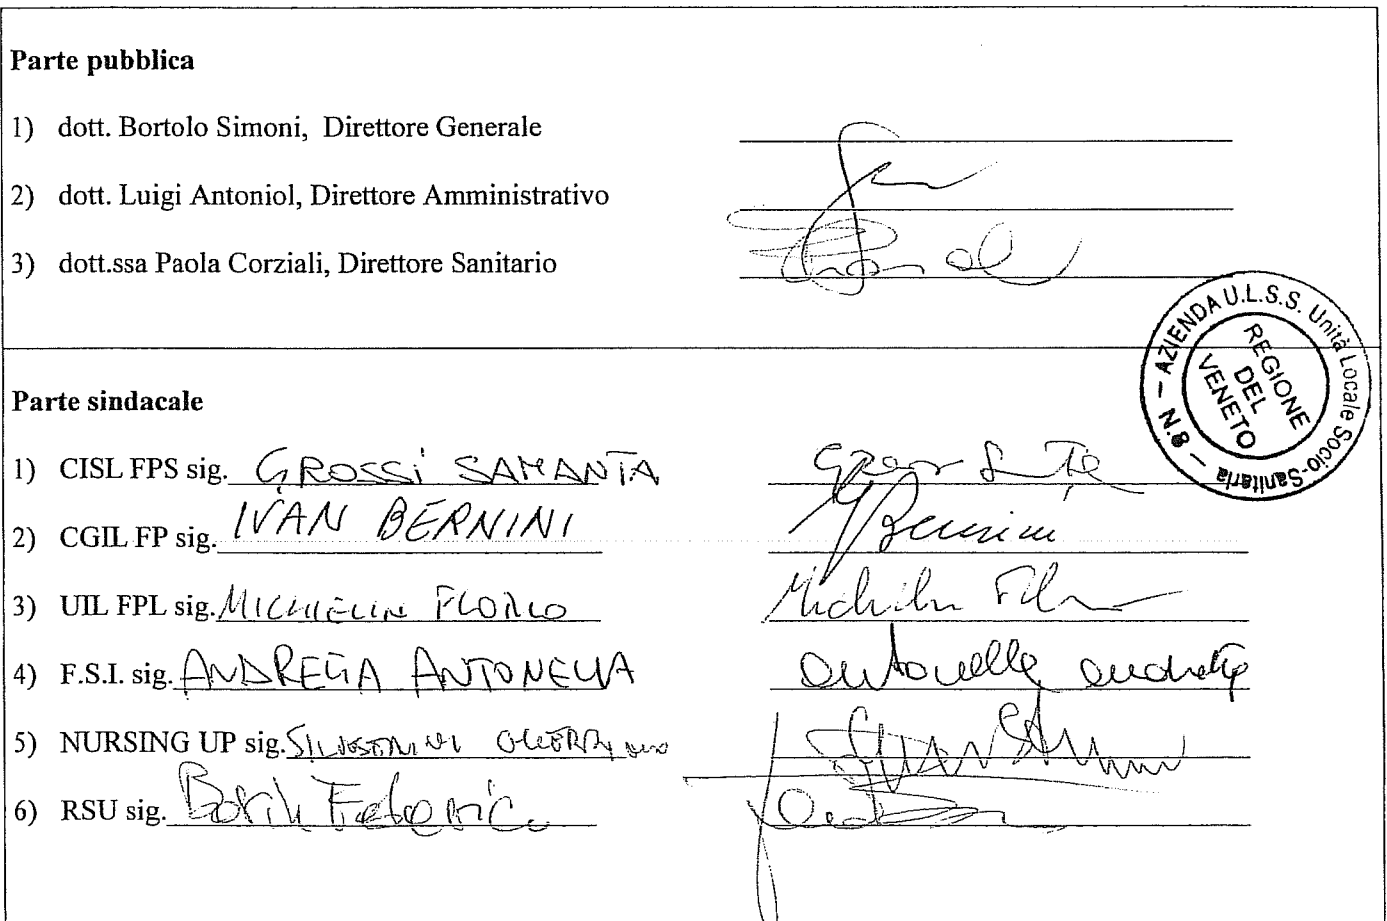 Parte pubblica
1) dott. Bortolo Simoni, Direttore Generale
2) dott. Luigi Antoniol, Direttore Amministrativo
3) dott.ssa Paola Corziali, Direttore Sanitario
N.8 – AZIENDA U.L.S.S. Unità Locale Socio-Sanitaria –
REGIONE
DEL
VENETO
Parte sindacale
1) CISL FPS sig. GROSSI SAMANTA
2) CGIL FP sig. IVAN BERNINI Bernini
3) UIL FPL sig. MICHIELIN
4) F.S.I. sig. ANDRETTA ANTONELLA antonella andretta
5) NURSING UP sig.
6) RSU sig.